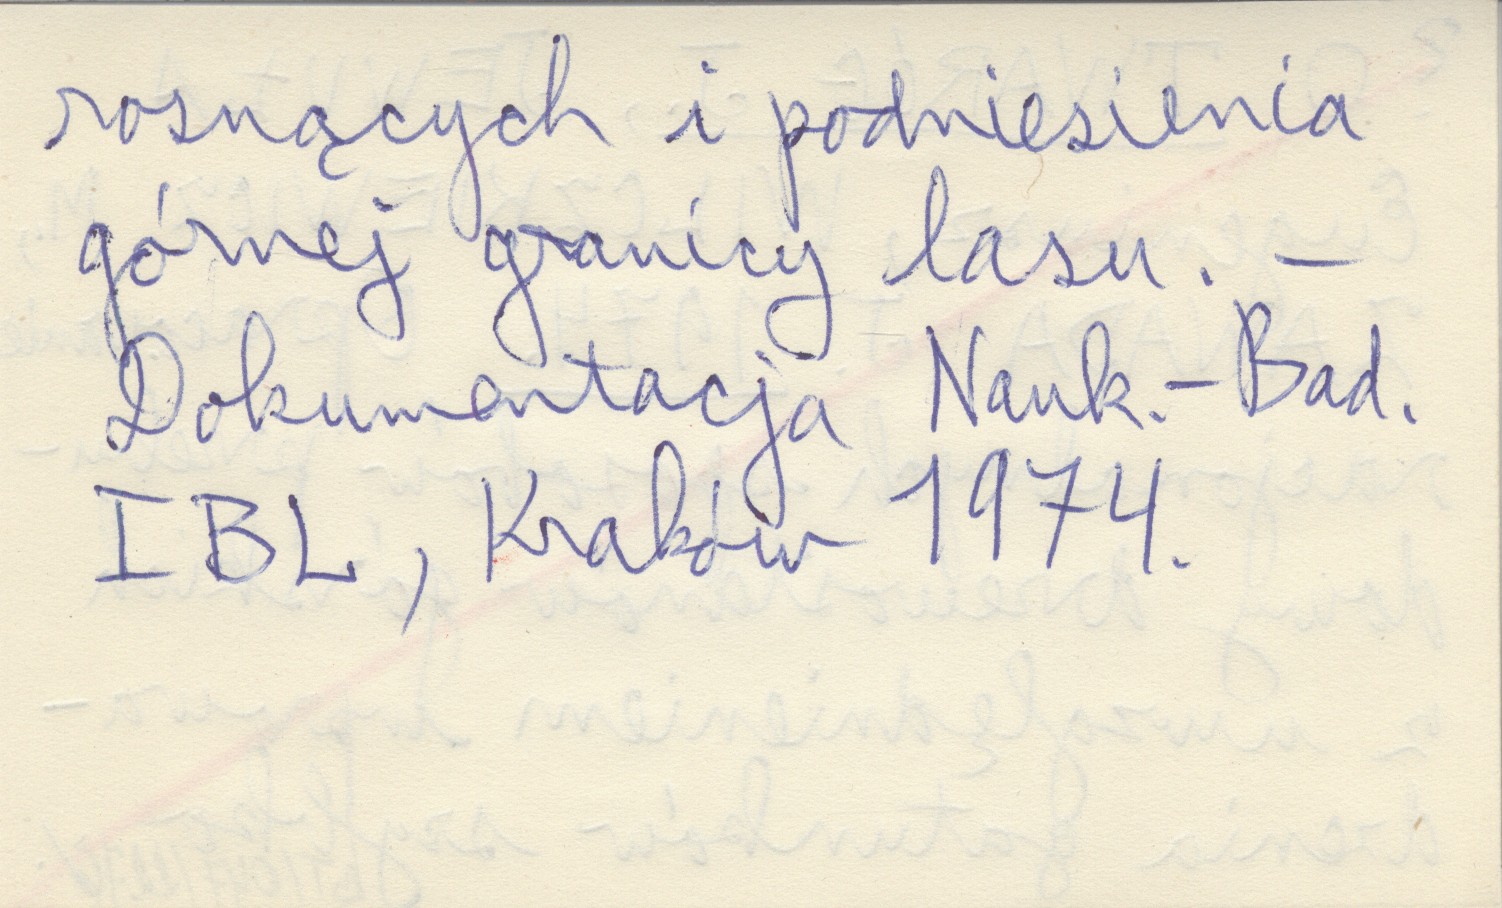 rosnących i podniesienia
górnej granicy lasu. –
Dokumentacja Nauk.-Bad.
IBL, Kraków 1974.